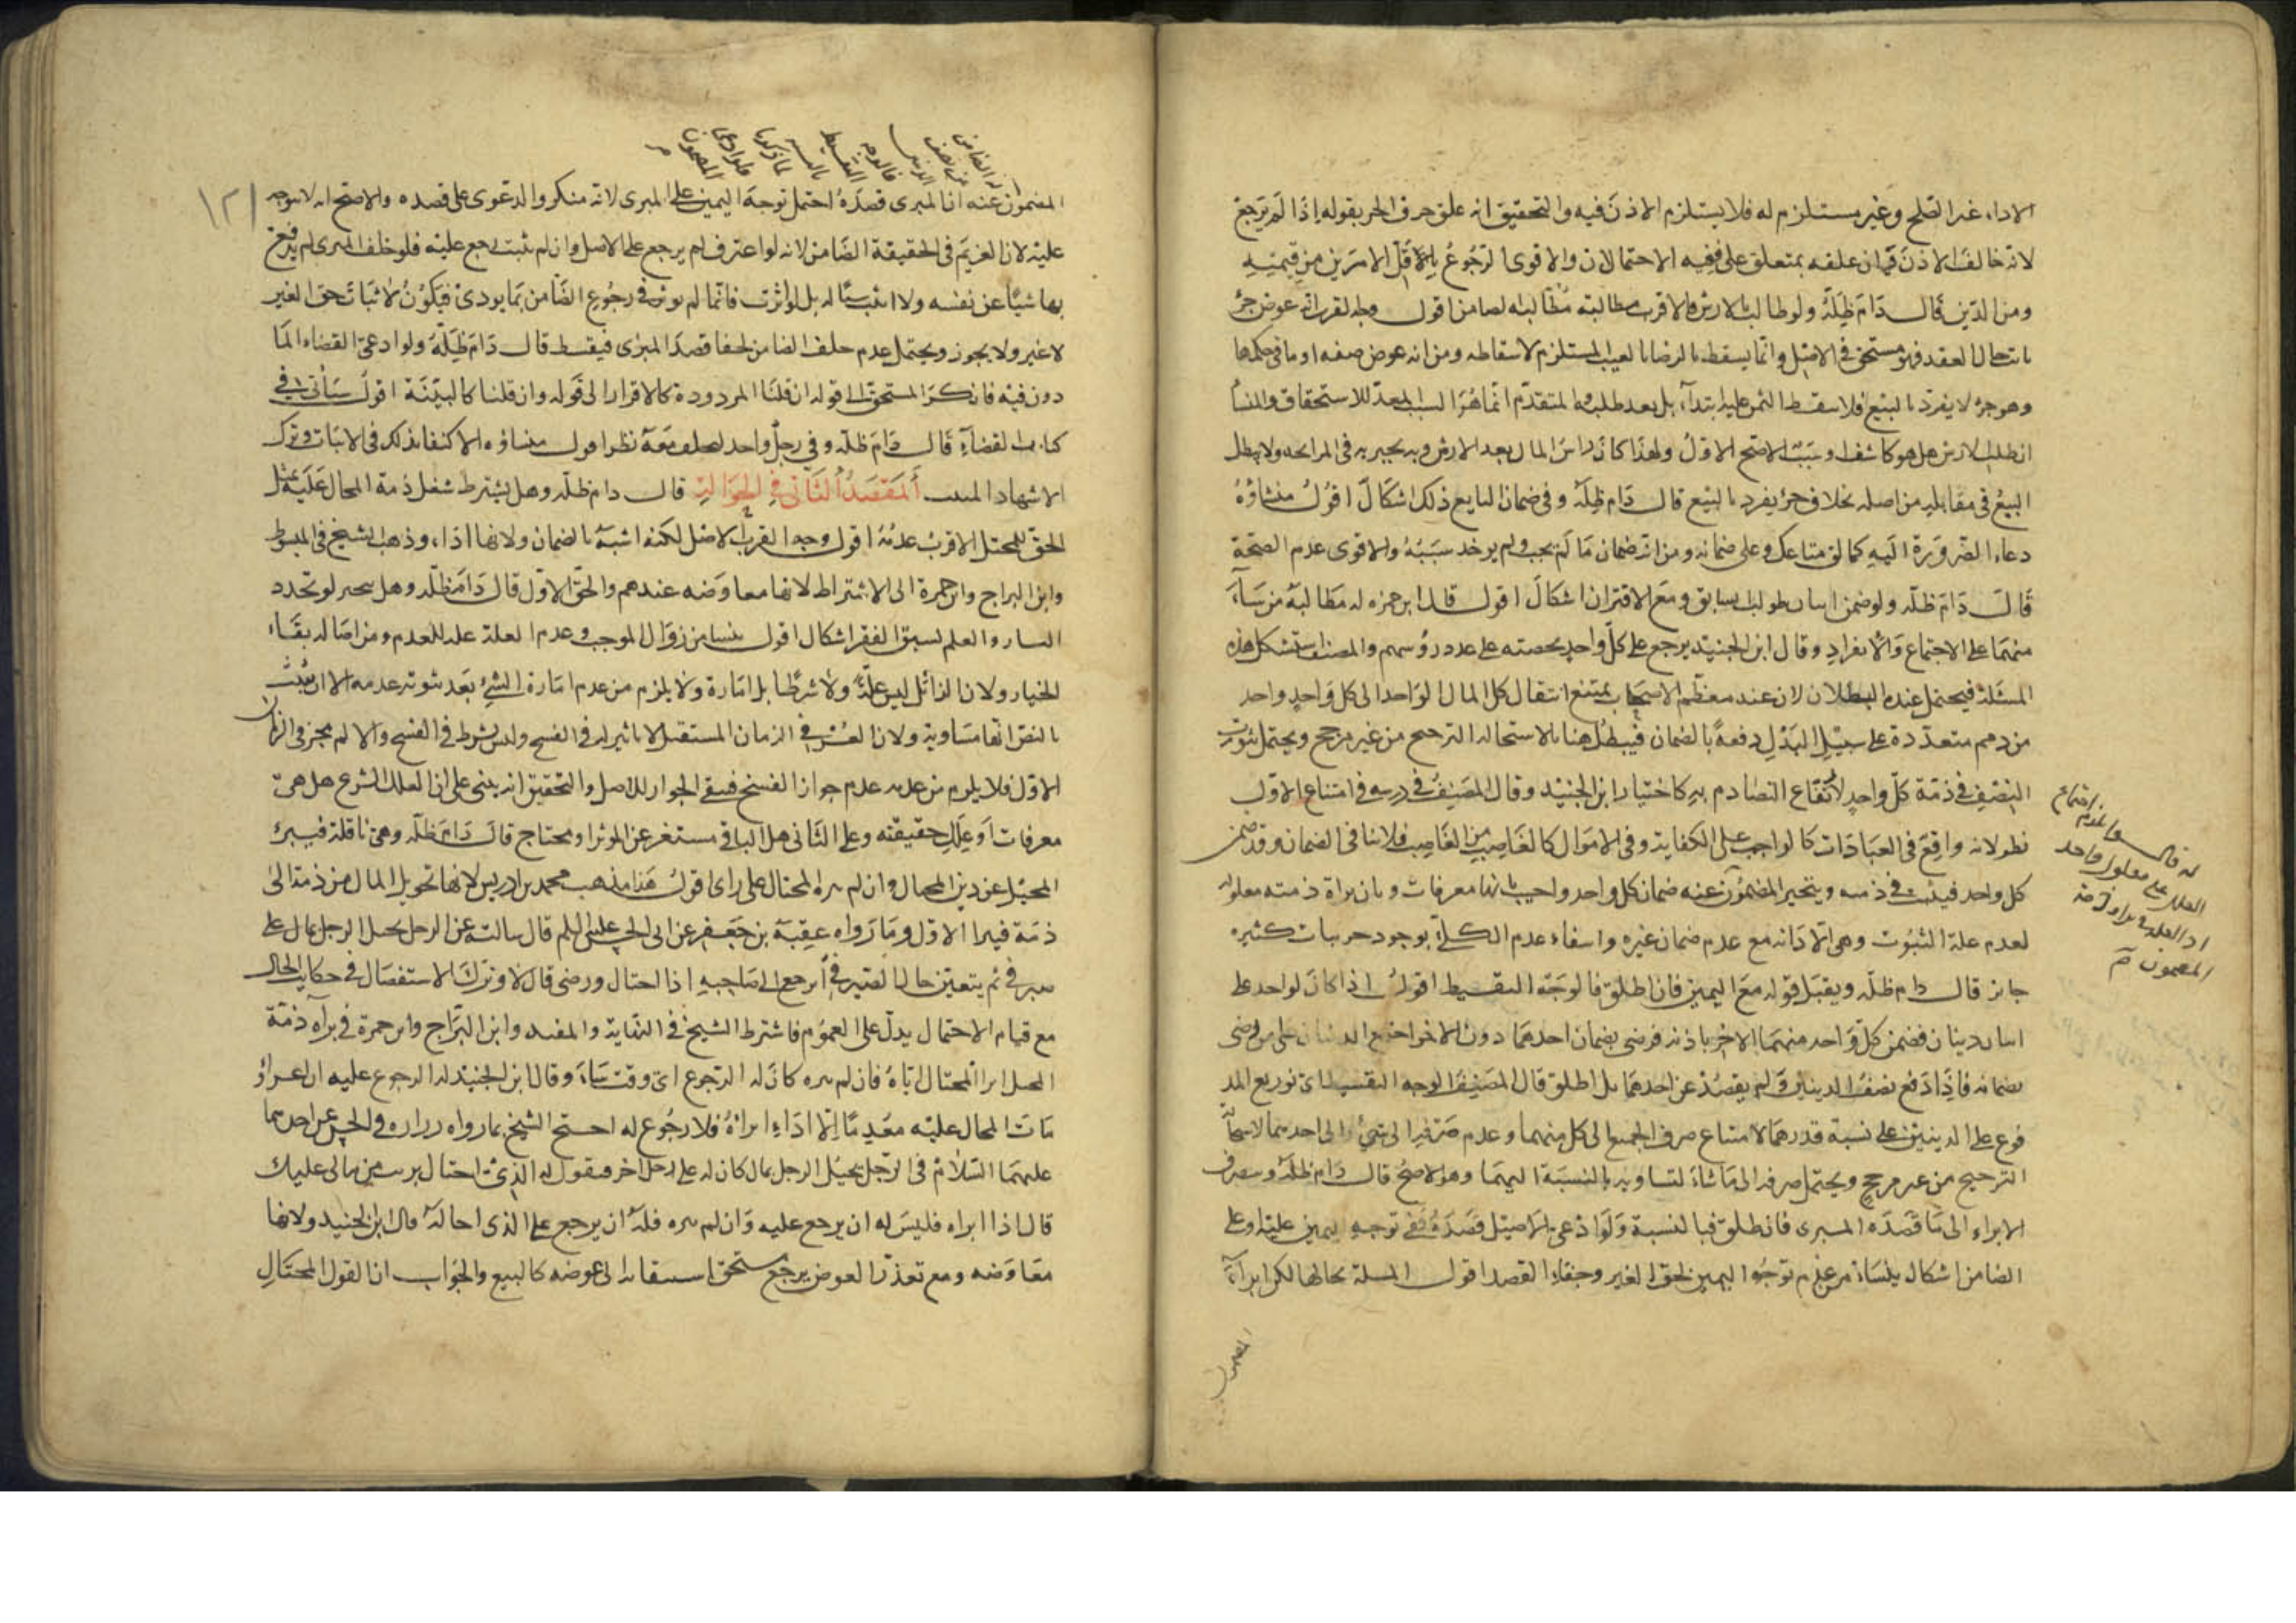 الاداء غير الصلح وغير مستلزم له فلا يستلزم الاذن فيه والتحقيق انه علق حرف الجر بقوله اذا لم يرجع
لانه خالف الاذن فمان علقه بمتعلق على ففيه الاحتمالان والاقوى الرجوع باقل الامرين من قيمته
ومن الدين قال دام ظله ولو طالب بالارش فالاقرب مطالبته اقول وجه القرب انه عوض جزء
بالعقد فهو مستحق في الاصل وانما يسقط بالرضا بالعيب المستلزم لاسقاطه ومن انه عوض صفة او ما في حكمها
وهو جزء لا يفرد بالبيع فلا يسقط الثمن عليه ابتداء بل بعد طلبه والمتقدم انما هو السبب المعد للاستحقاق والمنشأ
ان طلب الارش هل هو كاشف او سبب الاصح الاول ولهذا كان راس المال بعد الارش وبه يخبر به في المرابحة ولا يبطل
البيع في مقابله من اصله بخلاف جزء يفرد بالبيع قال دام ظله وفي ضمان البايع ذلك اشكال اقول منشاؤه
دعاء الضرورة اليه كما لق متاعك وعلى ضمانه ومن انه ضمان ما لم يجب ولم يوجد سببه والاقوى عدم الصحة
قال دام ظله ولو ضمن اثنان طولب السابق ومع الاقتران اشكال اقول قال ابن حمزة له مطالبة من شاء
منهما على الاجتماع والانفراد وقال ابن الجنيد يرجع على كل واحد بحصته على عدد رؤسهم والمصنف استشكل هذه
المسئلة فيحتمل عنده البطلان لان عند معظم الاصحاب يمتنع انتقال كل المال الواحد الى كل واحد واحد
من ذمم متعددة على سبيل البدل دفعة بالضمان فيبطل هنا لاستحالة الترجيح من غير مرجح ويحتمل ثبوت
النصف في ذمة كل واحد لاتقاع التصادم به كاختيار ابن الجنيد وقال المصنف في درسه في امتناع الاول
نظر لانه واقع في العبادات كالواجب على الكفاية وفي الاموال كالغاصب من الغاصب فلا تنافي الضمان وقد ضمن
كل واحد فيثبت في ذمته ويتخير المضمون عنه ضمان كل واحد واجيب بانها معرفات وبان براءة ذمته معلولة
لعدم علة الثبوت وهي الاداء مع عدم ضمان غيره وانتفاء عدم الكلي بوجود جزئيات كثيرة
جائز قال دام ظله ويقبل قوله مع اليمين فان اطلق فالوجه التقسيط اقول اذا كان لواحد على
اثنان دينان فضمن كل واحد منهما الاخر باذنه فرضي بضمان احدهما دون الاخر اجتمع الدينان على من رضي
بضمانه فاذا دفع نصف الدينين ولم يقصد عن احدهما بل اطلق قال المصنف الوجه التقسيط اي توزيع المد
فوع على الدينين على نسبة قدرهما لامتناع صرف الجميع الى كل منهما وعدم صرفه الى شيء والى احدهما لاستحالة
الترجيح من غير مرجح ويحتمل صرفه الى ما شاء لتساويه بالنسبة اليهما وهو الاصح قال دام ظله وينصرف
الابراء الى ما قصده المبرى فان اطلق فبالنسبة ولو ادعى الاصيل قصده ففي توجه اليمين عليه او على
الضامن اشكال ينشأ من عدم توجه اليمين لحق الغير وخفاء القصد اقول المسئلة بحالها لكن ابرأه
المضمون
المضمون عنه ان المبرى قصده احتمل توجه اليمين على المبرى لانه منكر والدعوى على قصده والاصح انه لا يتوجه
عليه لان الغريم في الحقيقة الضامن لانه لو اعترف لم يرجع على الاصل وان لم يثبت رجع عليه فلو حلف المبرى لم يدفع
بها شيئا عن نفسه ولا اثبت شيئا له بل لو اثرت فانما لم يوثر في رجوع الضامن بما يودى فيكون لاثبات حق الغير
لا غير ولا يجوز ويحتمل عدم حلف الضامن لخفا قصد المبرى فيقسط قال دام ظله ولو ادعى القضاء الما
دون فيه فانكر المستحق الى قوله ان قلنا المردودة كالاقرار الى قوله وان قلنا كالبينة اقول سيأتي في
كتاب القضاء قال دام ظله وفي رجل واحد ليحلف معه نظر اقول منشاؤه الاكتفا بذلك في الاثبات وترك
الاشهاد المقصد الثاني في الحوالة قال دام ظله وهل يشترط شغل ذمة المحال عليه بمثل
الحق للمحتل الاقرب عدمه اقول وجه القرب الاصل لكنه اشبه بالضمان ولانها اداء وذهب الشيخ في المبسوط
وابن البراج وابن حمزة الى الاشتراط لانها معاوضة عندهم والحق الاول قال دام ظله وهل يتخير لو تجدد
اليسار والعلم لسبق الفقر اشكال اقول ينشا من زوال الموجب وعدم العلة علة للعدم ومن اصالة بقاء
الخيار ولان الزائل ليس علة ولا شرطا بل امارة ولا يلزم من عدم امارة الشيء بعد ثبوته عدمه الا ان يثبت
بالنص انها مساوية ولان العسر في الزمان المستقبل لا تاثير له في الفسخ وليس بشرط في الفسخ والا لم يجز في الزمان
الاول فلا يلزم من عدمه عدم جواز الفسخ فيبقى الجواز للاصل والتحقيق انه يبنى على ان العلل الشرع هل هي
معرفات او علل حقيقته وعلى الثاني هل الباقي مستغن عن المؤثر او محتاج قال دام ظله وهي ناقلة فيبرئ
المحيل عن دين المحال وان لم يبره المحتال على راى اقول هذا مذهب محمد بن ادريس لانها تحويل المال من ذمة الى
ذمة فيبرا الاول وما رواه عقبة بن جعفر عن ابي الحسن عليه السلم قال سالته عن الرجل يحيل الرجل بمال على
صيرفي ثم يتغير حال الصيرفي أيرجع الى صاحبه اذا احتال ورضى قال لا وترك الاستفصال في حكاية الحال
مع قيام الاحتمال يدل على العموم فاشترط الشيخ في النهاية والمفيد وابن البراج وابن حمزة في براءة ذمة
المحيل ابراء المحتال اياه فان لم يبره كان له الرجوع اي وقت شاء وقال ابن الجنيد له الرجوع عليه ان اعسر او
مات المحال عليه معدما الا اذا ابراه فلا رجوع له احتج الشيخ بما رواه زرارة في الحسن عن احدهما
عليهما السلام في الرجل يحيل الرجل بمال كان له على رجل اخر فيقول له الذي احتال برئت من مالي عليك
قال اذا ابراه فليس له ان يرجع عليه وان لم يبره فله ان يرجع على الذي احاله قال ابن الجنيد ولانها
معاوضة ومع تعذر العوض يرجع مستحق استيفائه الى عوضه كالبيع والجواب ان القول المحتال